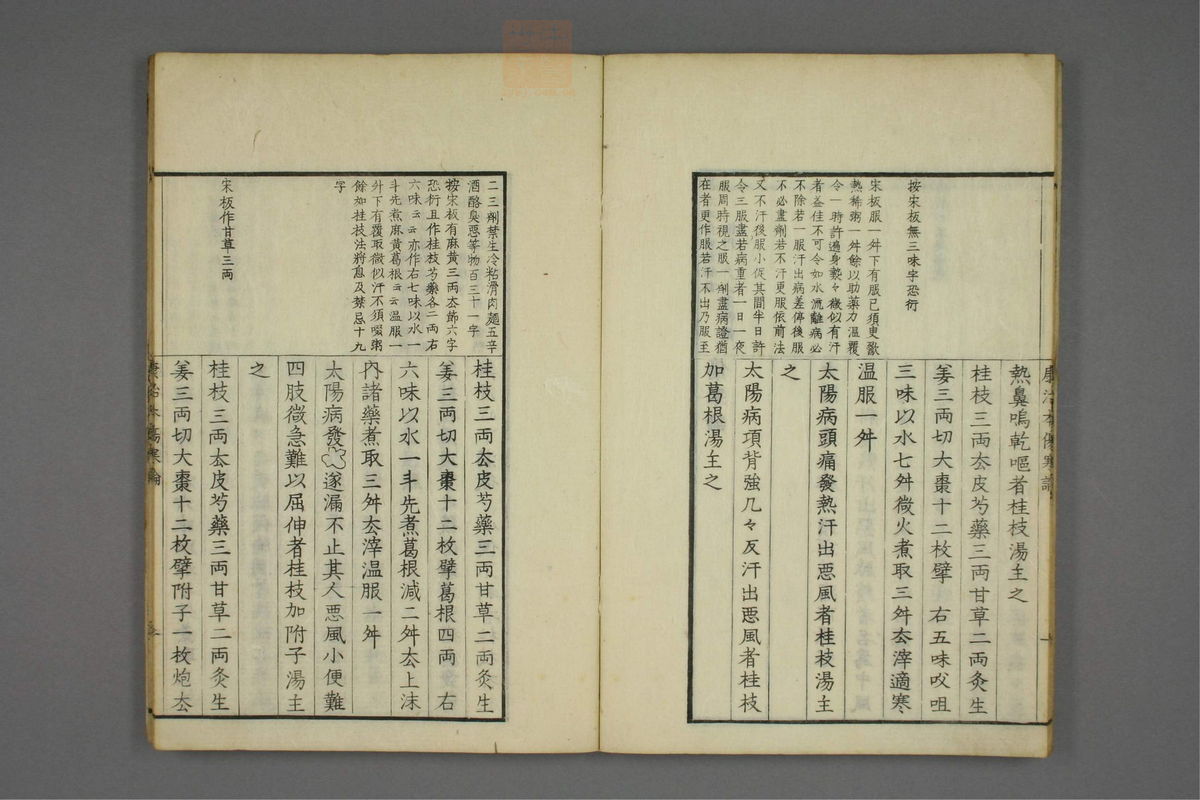 康治本傷寒論
按宋板無三味字恐衍
宋板服一舛下有服已須臾歠
熱稀粥一舛餘以助藥力溫覆
令一時許遍身漐々微似有汗
者益佳不可令如水流離病必
不除若一服汗出病差停後服
不必盡劑若不汗更服依前法
又不汗後服小促其間半日許
令三服盡若病重者一日一夜
服周時視之服一劑盡病證猶
在者更作服若汗不出乃服至
熱鼻鳴乾嘔者桂枝湯主之
桂枝三両去皮芍藥三両甘草二両灸生
姜三両切大棗十二枚擘 右五味㕮咀
三味以水七舛微火煮取三舛去滓適寒
温服一舛
太陽病頭痛發熱汗出悪風者桂枝湯主
之
太陽病項背強几々反汗出悪風者桂枝
加葛根湯主之
二三劑禁生冷粘滑肉麺五辛
酒酪臭悪等物百三十一字
按宋板有麻黄三両去節六字
恐衍且作桂枝芍藥各二両右
六味云云亦作右七味以水一
斗先煮麻黄葛根云云温服一
舛下有覆取微似汗不須啜粥
餘如桂枝法將息及禁忌十九
字
宋板作甘草三両
桂枝三両去皮芍藥三両甘草二両灸生
姜三両切大棗十二枚擘葛根四両 右
六味以水一斗先煮葛根減二舛去上沫
內諸藥煮取三舛去滓温服一舛
太陽病發遂漏不止其人悪風小便難
四肢微急難以屈伸者桂枝加附子湯主
之
桂枝三両去皮芍藥三両甘草二両灸生
姜三両切大棗十二枚擘附子一枚炮去
康治本傷寒論